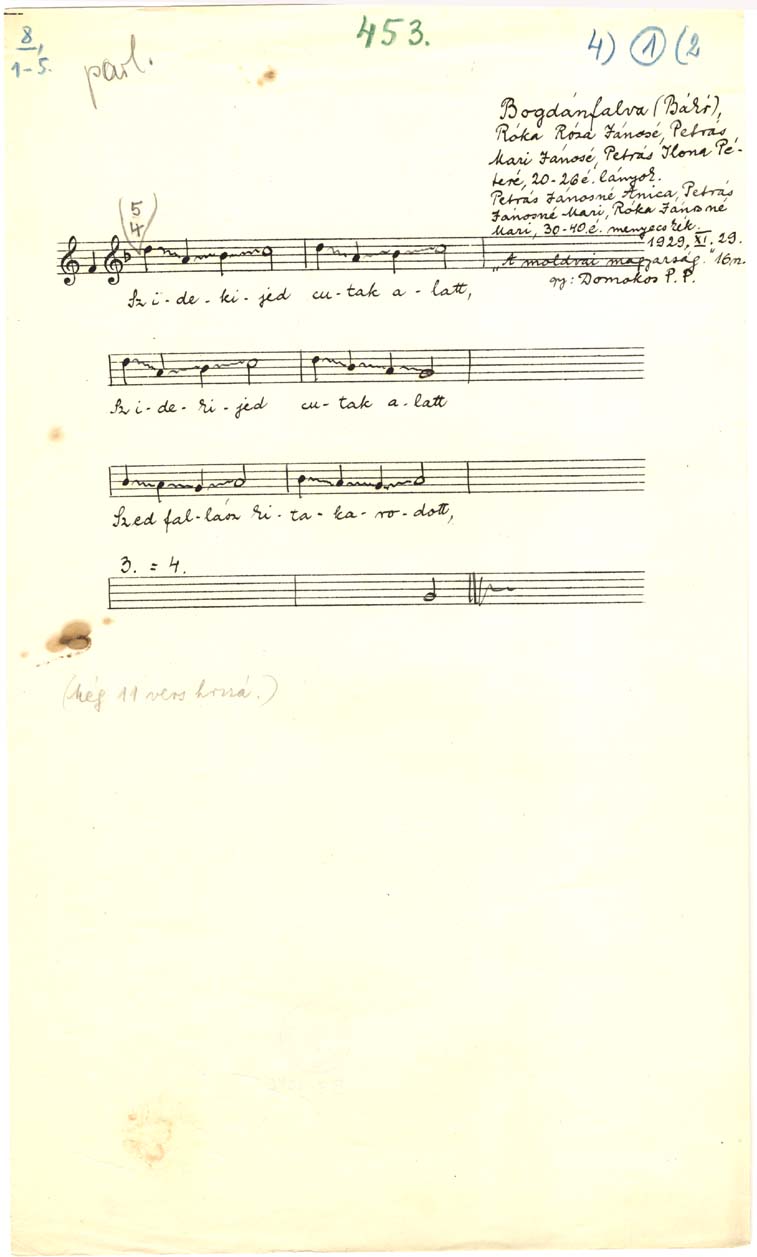 8/1-5.
453.
4) 1 (2
parl.
Bogdánfalva (Bákó),
Róka Róza Jánosé, Petrás
Mari Jánosé, Petrás Ilona Pé-
teré, 20-26 é. lányok.
Petrás Jánosné Anica, Petrás
Jánosné Mari, Róka Jánosné
Mari, 30-40 é. menyecskék.
1929, XI. 29.
"A moldvai magyarság." 16n.
gy: Domokos P. P.
5
4
Szi-de-ki-jed cu-tak a-latt,
Szi-de-ki-jed cu-tak a-latt
Szed fal-lász ki-ta-ka-ro-dott,
3. = 4.
(Még 11 vers hozzá.)